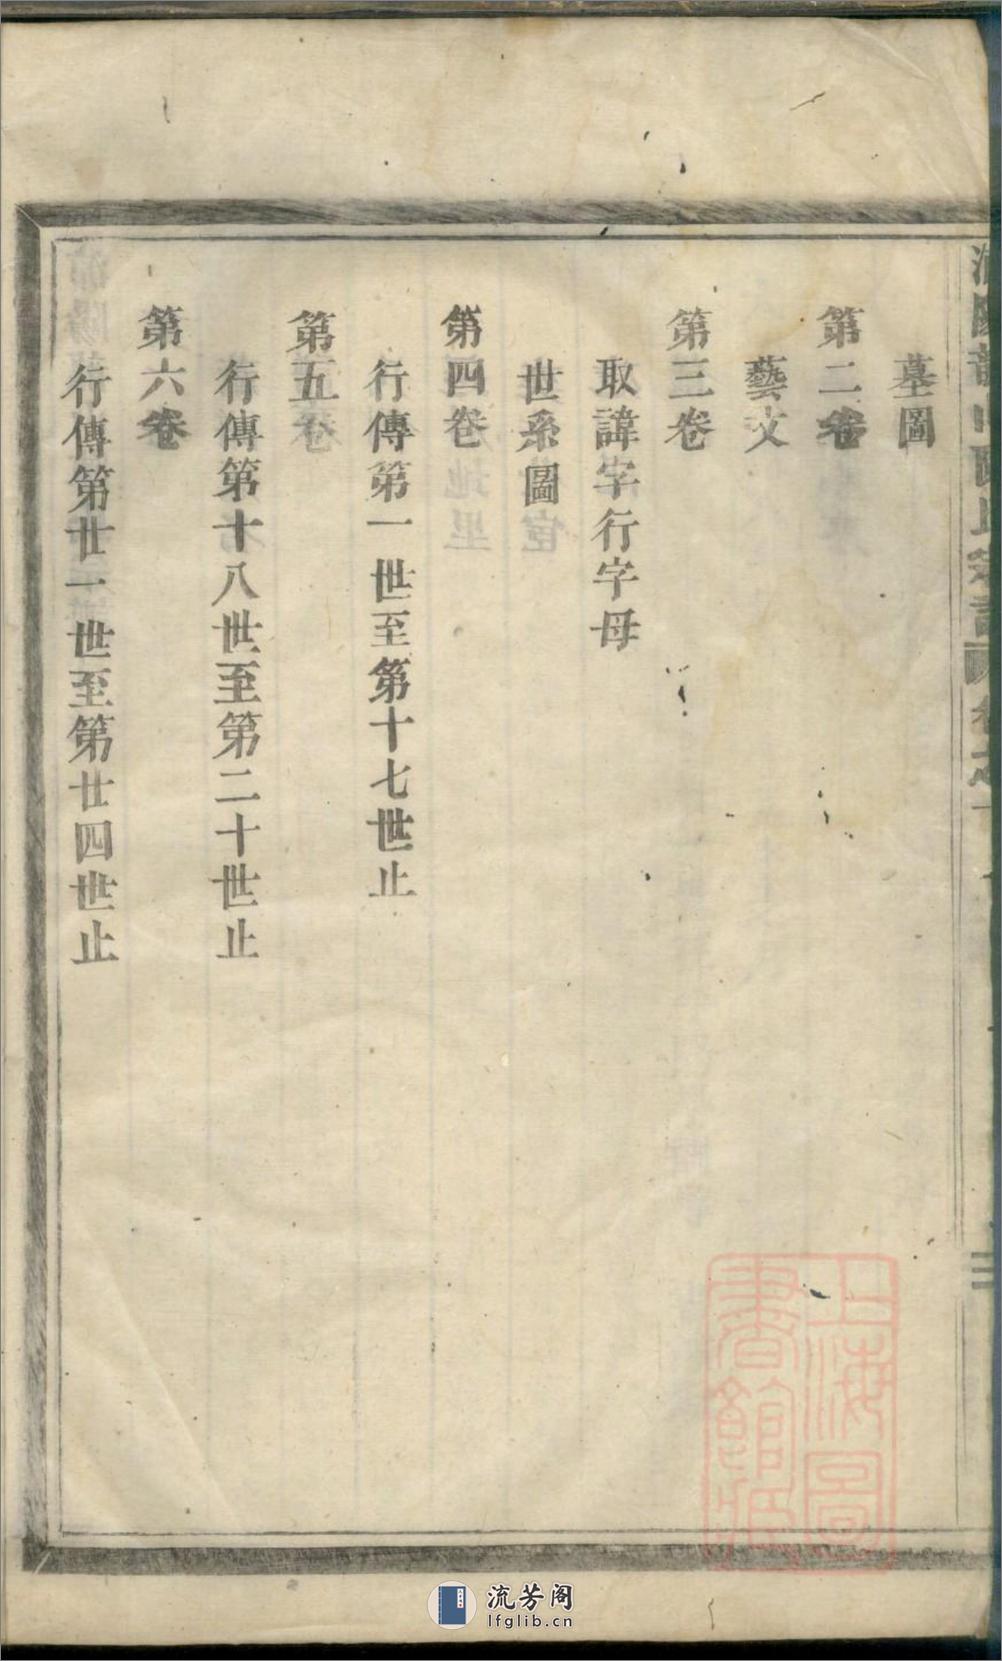 墓圖
第二卷
藝文
第三卷
取諱字行字母
世系圖
第四卷
行傳第一世至第十七世止
第五卷
行傳第十八世至第二十世止
第六卷
行傳第廿一世至第廿四世止
上海圖
書館藏
流芳阁
lfglib.cn